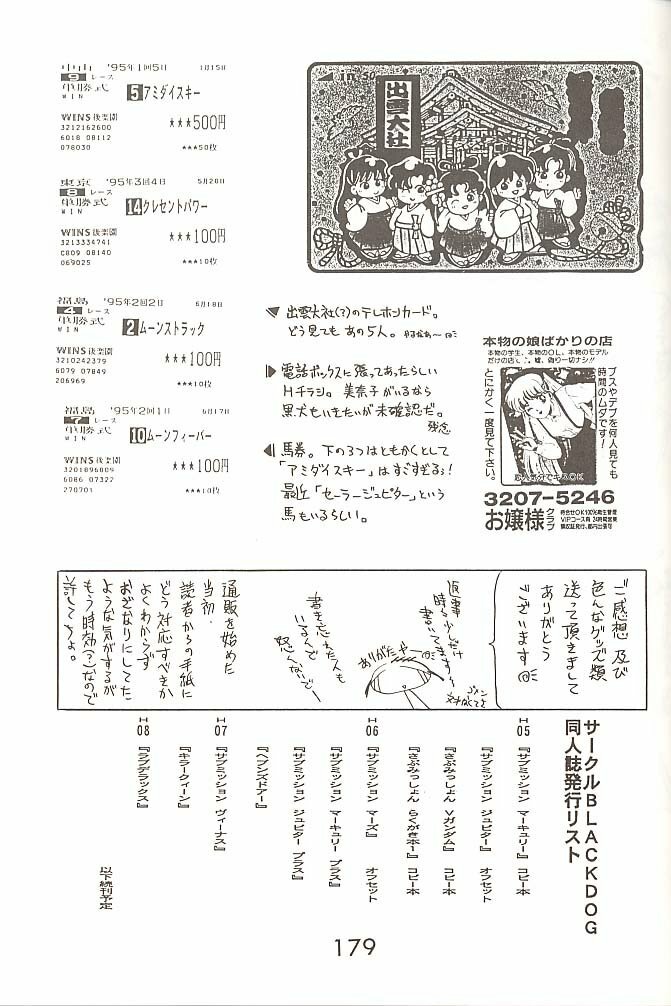 中山 '95年1回5日 1月15日
9レース
単勝式 5 アミダイスキー
WIN
WINS後楽園 ★★★500円
3212162600
6018 08112
078030 ★★★50枚
東京 '95年3回4日 5月28日
8レース
単勝式 14 クレセントパワー
WIN
WINS後楽園 ★★★100円
3213334741
C809 08140
069025 ★★★10枚
福島 '95年2回2日 6月18日
4レース
単勝式 2 ムーンストラック
WIN
WINS後楽園 ★★★100円
3210242379
6079 07849
206969 ★★★10枚
福島 '95年2回1日 6月17日
7レース
単勝式 10 ムーンフィーバー
WIN
WINS後楽園 ★★★100円
3201896809
6086 07322
270701 ★★★10枚
50
出雲大社
出雲大社(?)のテレホンカード。
どう見てもあの5人。
電話ボックスに張ってあったらしい
Hチラシ。美奈子がいるなら
黒犬もいきたいが未確認だ。
残念
馬券。下の3つはともかくとして
「アミダイスキー」はすごすぎる!
最近「セーラージュピター」という
馬もいるらしい。
本物の娘ばかりの店
本物の学生、本物のOL、本物のモデル
だけの店です。嘘、偽り一切ナシ!!
ブスやデブを何人見ても
時間のムダです!
とにかく一度見て下さい。
恋人気分でキスOK
3207-5246
お嬢様クラブ
待合せOK100%衛生管理
VIPコース有 24時間営業
領収証発行、都内出張可
ご感想 及び
色んなグッズ類
送って頂きまして
ありがとう
ございます
返事
時々少しだけ
書いてますョ
ありがたや
書き忘れた人も
いるんで
怒んないでー
通販を始めた
当初.
読者からの手紙に
どう対応すべきか
よくわからず
おざなりにしてた
ような気がするが
もう時効(?)なので
許してちょ。
サークルBLACKDOG
同人誌発行リスト
H05 『サブミッション マーキュリー』 コピー本
『サブミッション ジュピター』 オフセット
『さぶみっしょん Vガンダム』 コピー本
『さぶみっしょん らくがき本1』 コピー本
H06 『サブミッション マーズ』 オフセット
『サブミッション マーキュリー プラス』
『サブミッション ジュピター プラス』
『ヘブンズドアー』
H07 『サブミッション ヴィーナス』
『キラークィーン』
H08 『ラブデラックス』
以下続刊予定
179